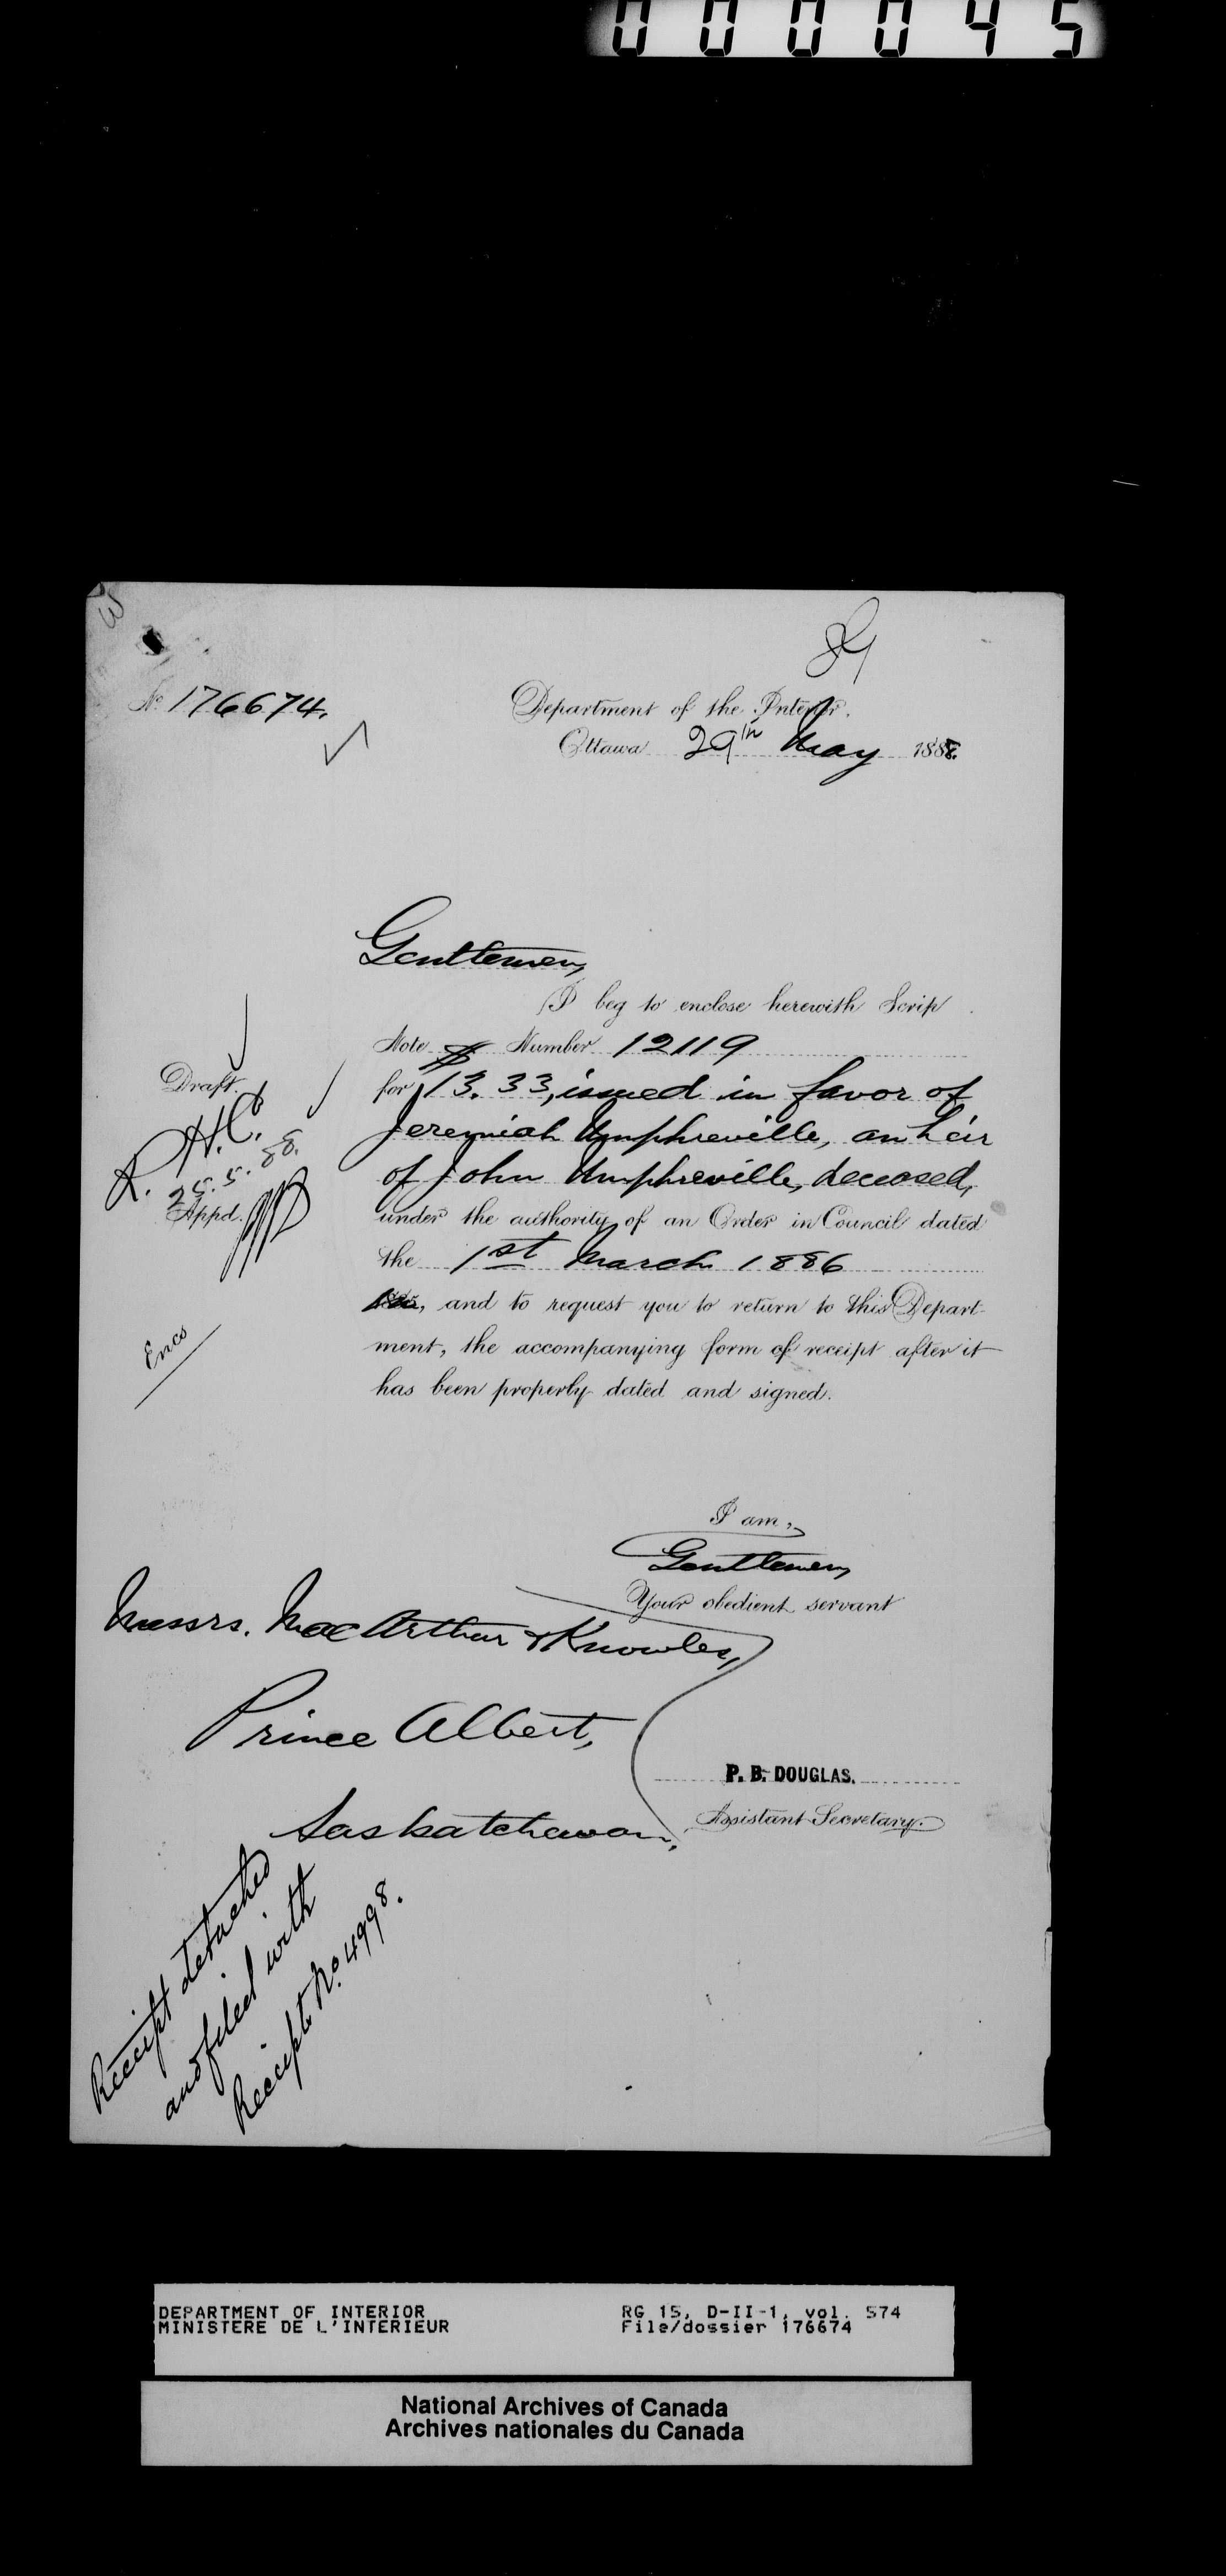 000045
No 176674.
Department of the Interior.
Ottawa 29th May 1888.
Gentlemen,
I beg to enclose herewith Scrip
Note Number 12119
for $13.33, issued in favor of
Jeremiah Umphreville, an heir
of John Umphreville, deceased,
under the authority of an Order in Council dated
the 1st March 1886
, and to request you to return to this Depart-
ment, the accompanying form of receipt after it
has been properly dated and signed.
Draft.
25.5.88.
Appd.
Encs
I am,
Gentlemen,
Your obedient servant
Messrs. MacArthur & Knowles,
Prince Albert,
Saskatchewan,
P. B. DOUGLAS.
Assistant Secretary.
Receipt detached
and filed with
Receipt No. 4998.
DEPARTMENT OF INTERIOR RG 15, D-II-1, vol. 574
MINISTERE DE L'INTERIEUR File/dossier 176674
National Archives of Canada
Archives nationales du Canada